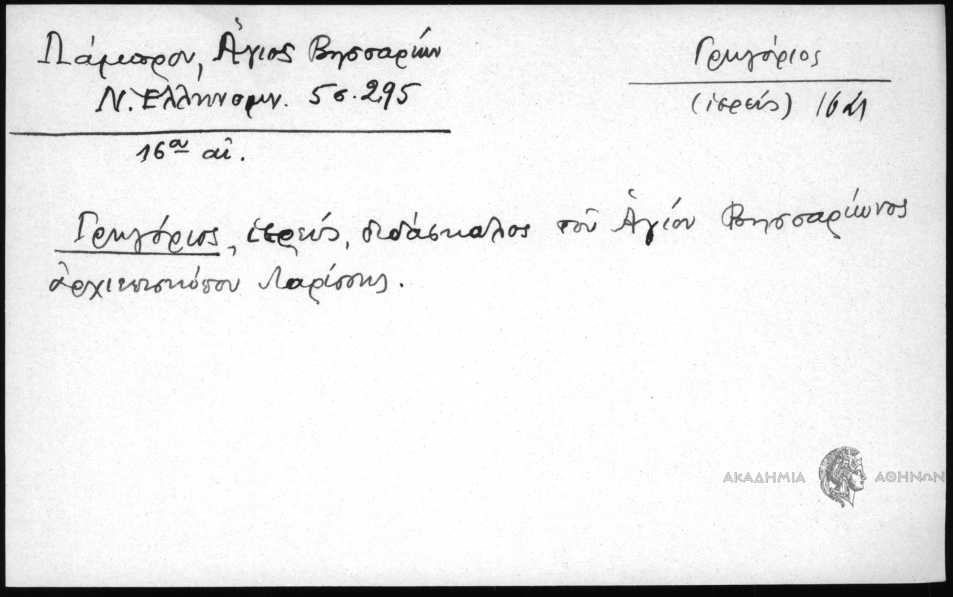 Λάμπρου, Ἅγιος Βησσαρίων
Ν. Ἑλληνομν. 5 σ. 295
16ᵃ αἰ.
Γρηγόριος
(ἱερεύς)
Γρηγόριος, ἱερεύς, διδάσκαλος τοῦ Ἁγίου Βησσαρίωνος
ἀρχιεπισκόπου Λαρίσσης.
ΑΚΑΔΗΜΙΑ ΑΘΗΝΩΝ